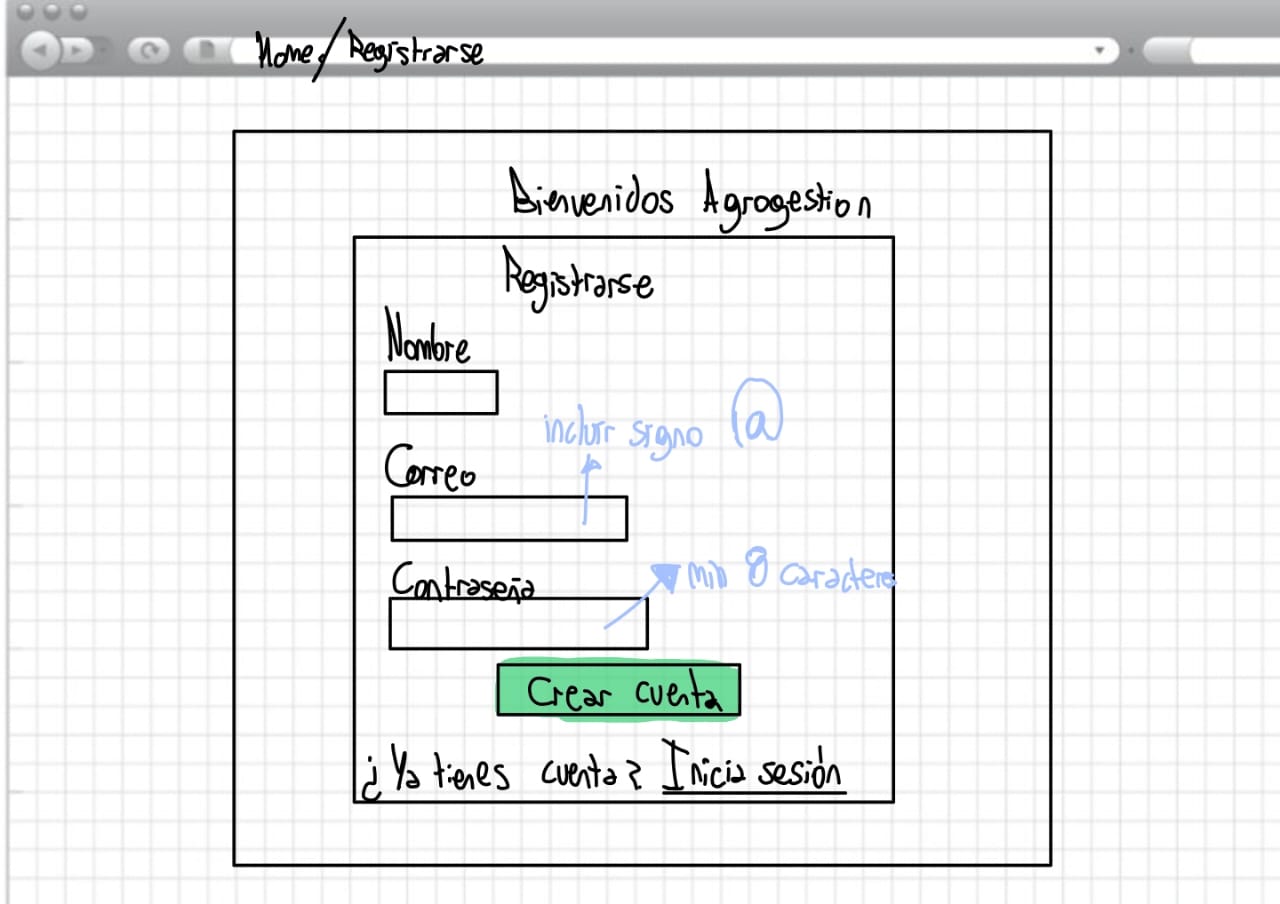 Home/Registrarse
Bienvenidos Agrogestion
Registrarse
Nombre
incluir signo @
Correo
min 8 caracteres
Contraseña
Crear cuenta
¿Ya tienes cuenta? Inicia sesión